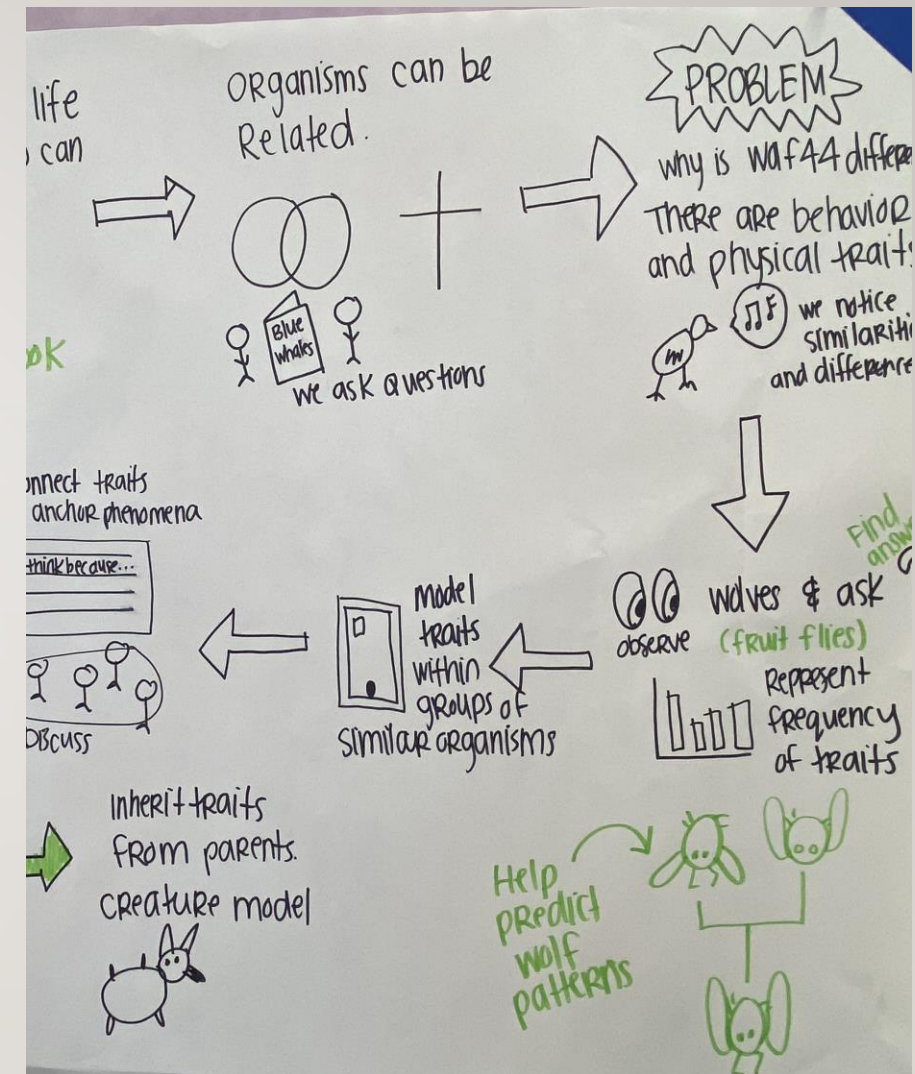 life
can
ORganisms can be
Related.
Blue
whales
we ask questions
PROBLEM
why is waf44 differe
There are behavior
and physical trait
we notice
similariti
and difference
ok
onnect traits
anchor phenomena
think because...
Discuss
Model
traits
within
groups of
similar organisms
Find
answ
wolves & ask
observe (fruit flies)
Represent
frequency
of traits
Inherit traits
from parents.
creature model
Help
predict
wolf
patterns